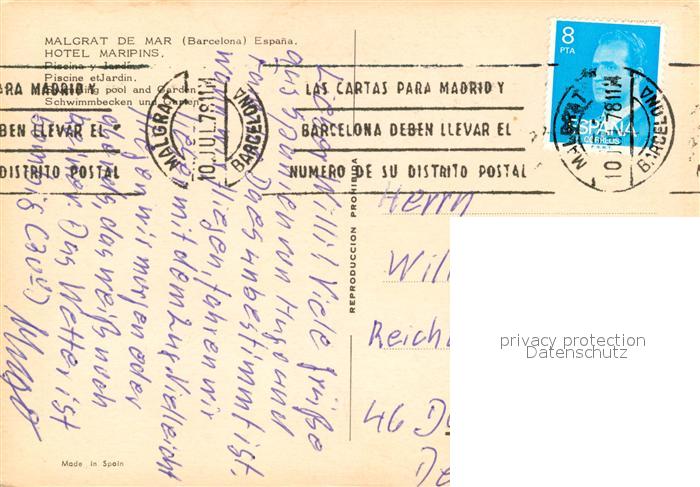 MALGRAT DE MAR (Barcelona) España.
HOTEL MARIPINS.
Piscina y Jardín.
Piscine et Jardin.
Swimming pool and Garden.
Schwimmbecken und Garten.
ARA MADRID Y
BEN LLEVAR EL
DISTRITO POSTAL
MALGRAT
10 JUL 78 11
BARCELONA
LAS CARTAS PARA MADRID Y
BARCELONA DEBEN LLEVAR EL
NUMERO DE SU DISTRITO POSTAL
8
PTA
ESPAÑA
CORREOS
MALGRAT
10 78 11
BARCELONA
Lieber Willi! Viele Grüße
aus Spanien von Hugo und
Da es unbestimmt ist,
wann wir fliegen, fahren wir
jetzt mit dem Zug. Vielleicht
wir morgen oder
das weiß noch
keiner. Das Wetter ist
sonnig
Hugo
REPRODUCCION PROHIBIDA
Herrn
Will
Reich
46 D
De
Made in Spain
privacy protection
Datenschutz